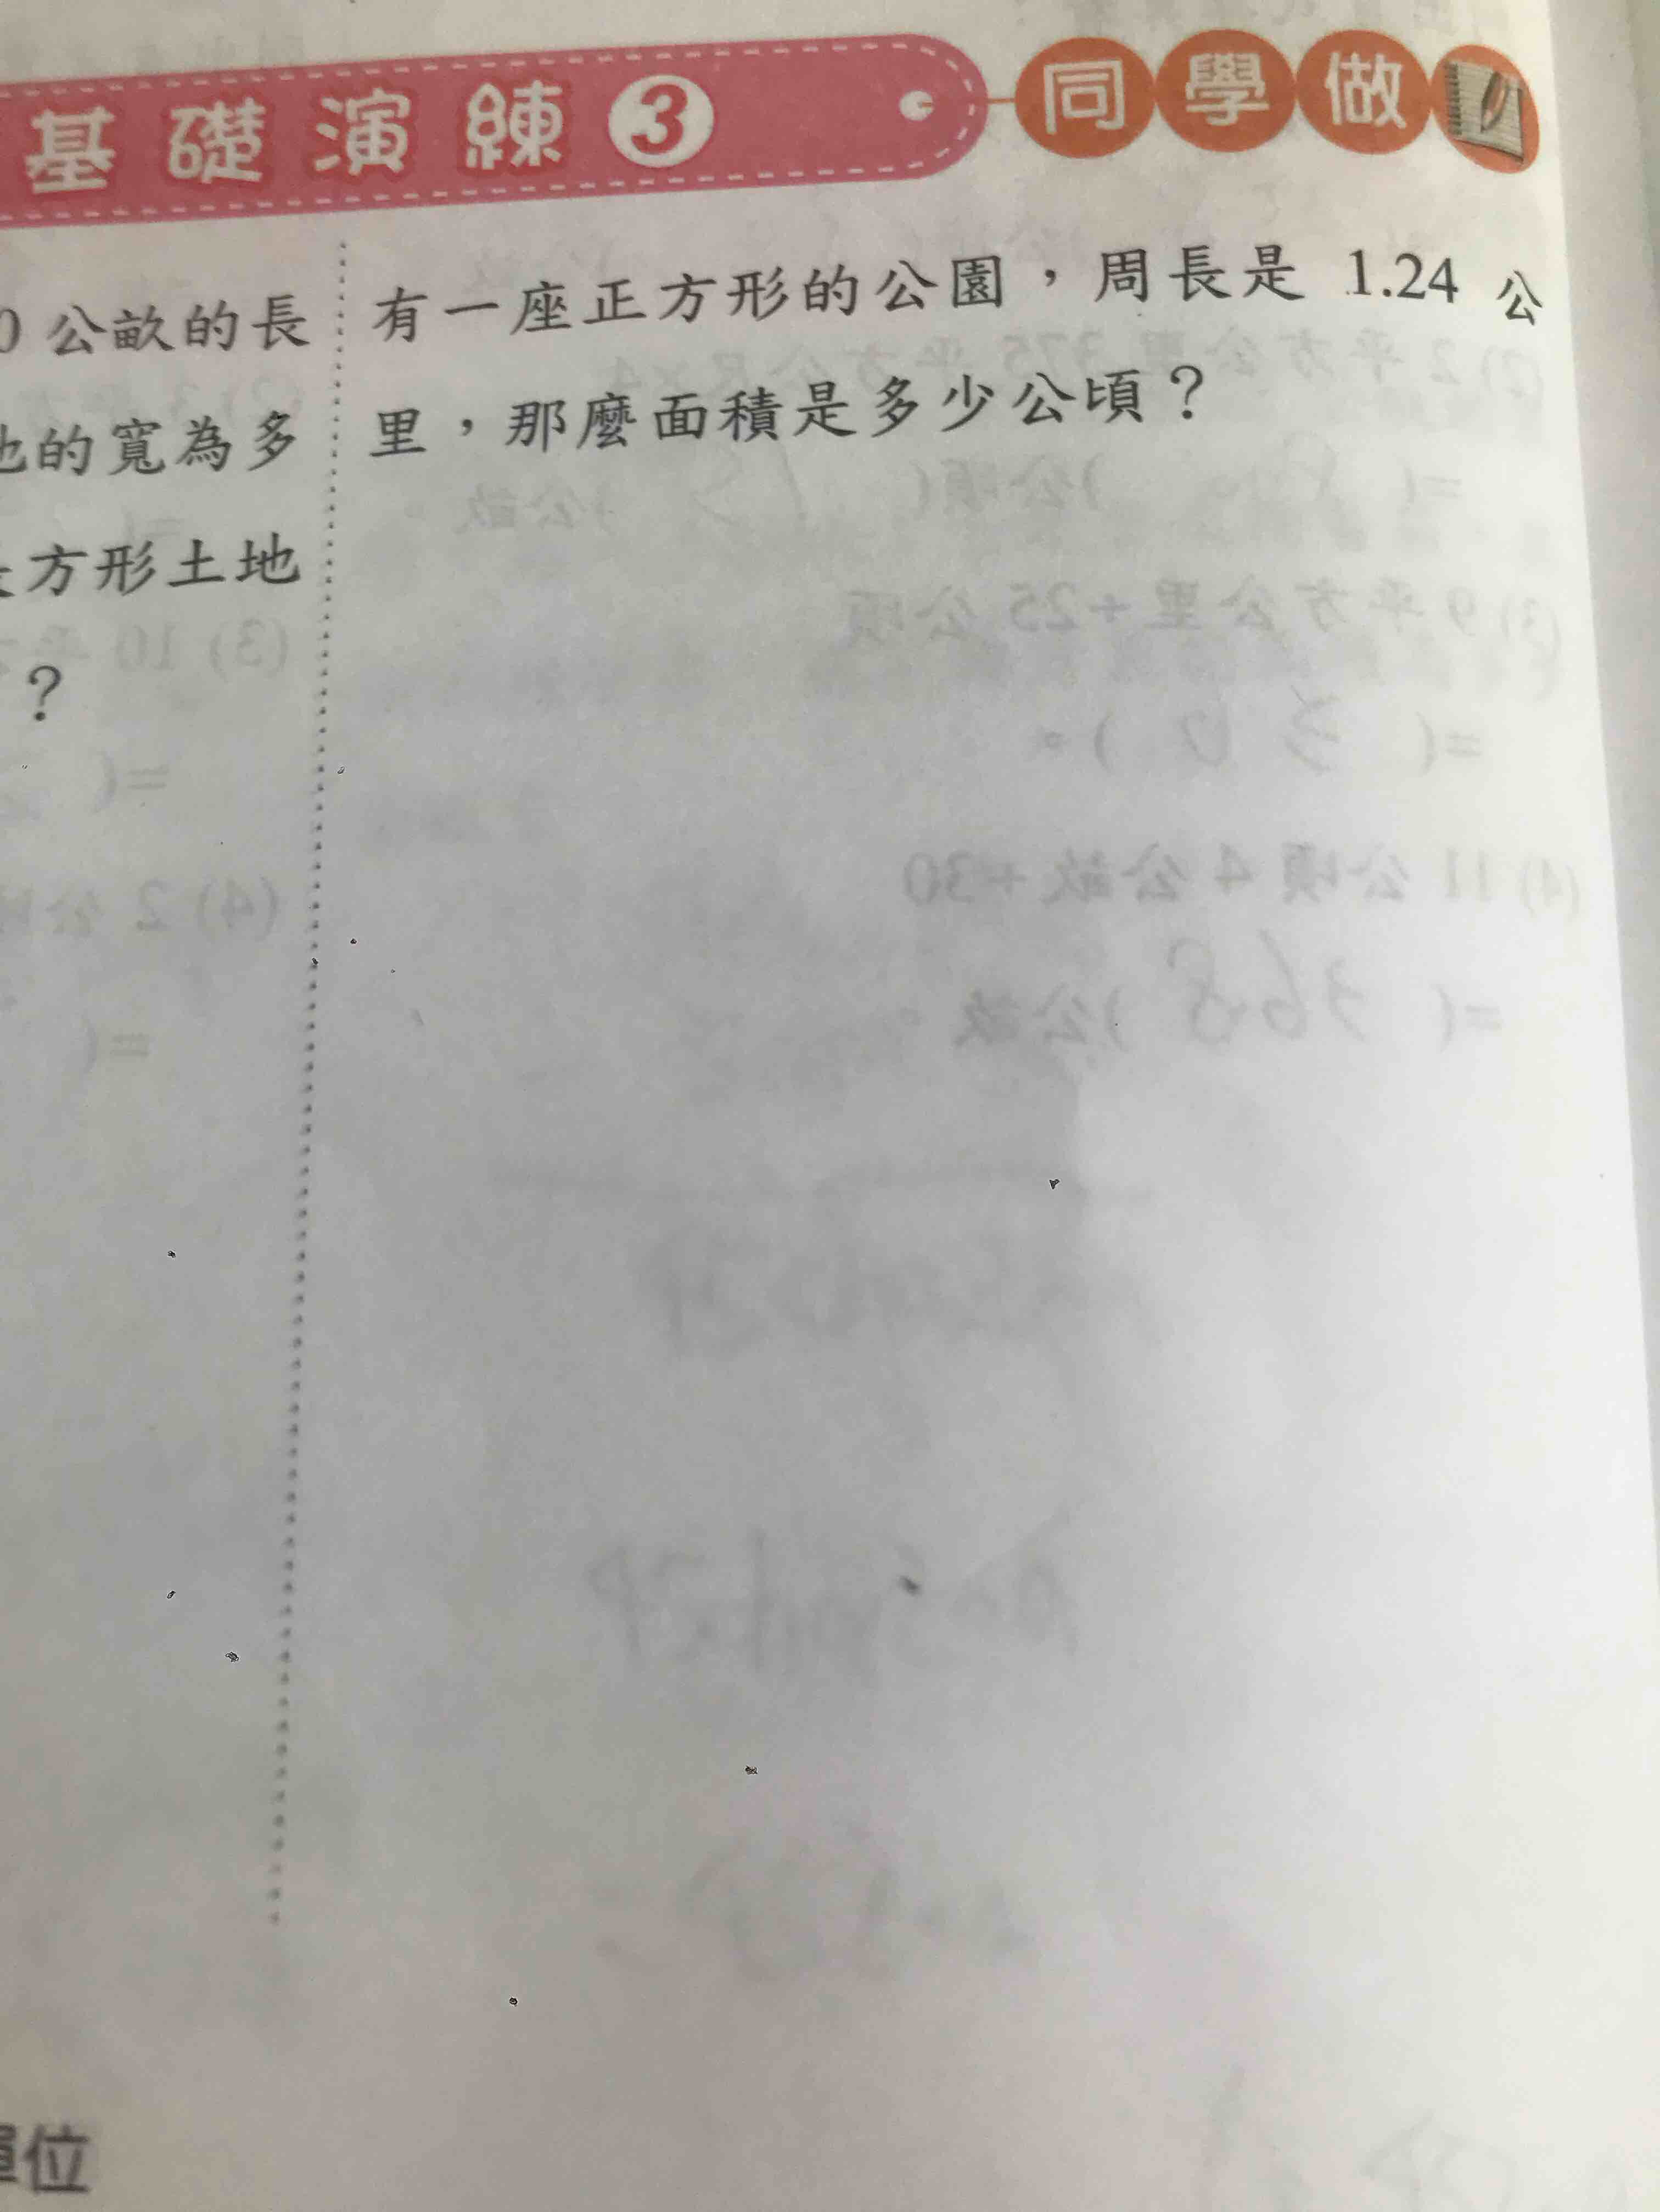 基礎演練3
同學做
0公畝的長
地的寬為多
方形土地
?
有一座正方形的公園,周長是 1.24 公
里,那麼面積是多少公頃?
單位